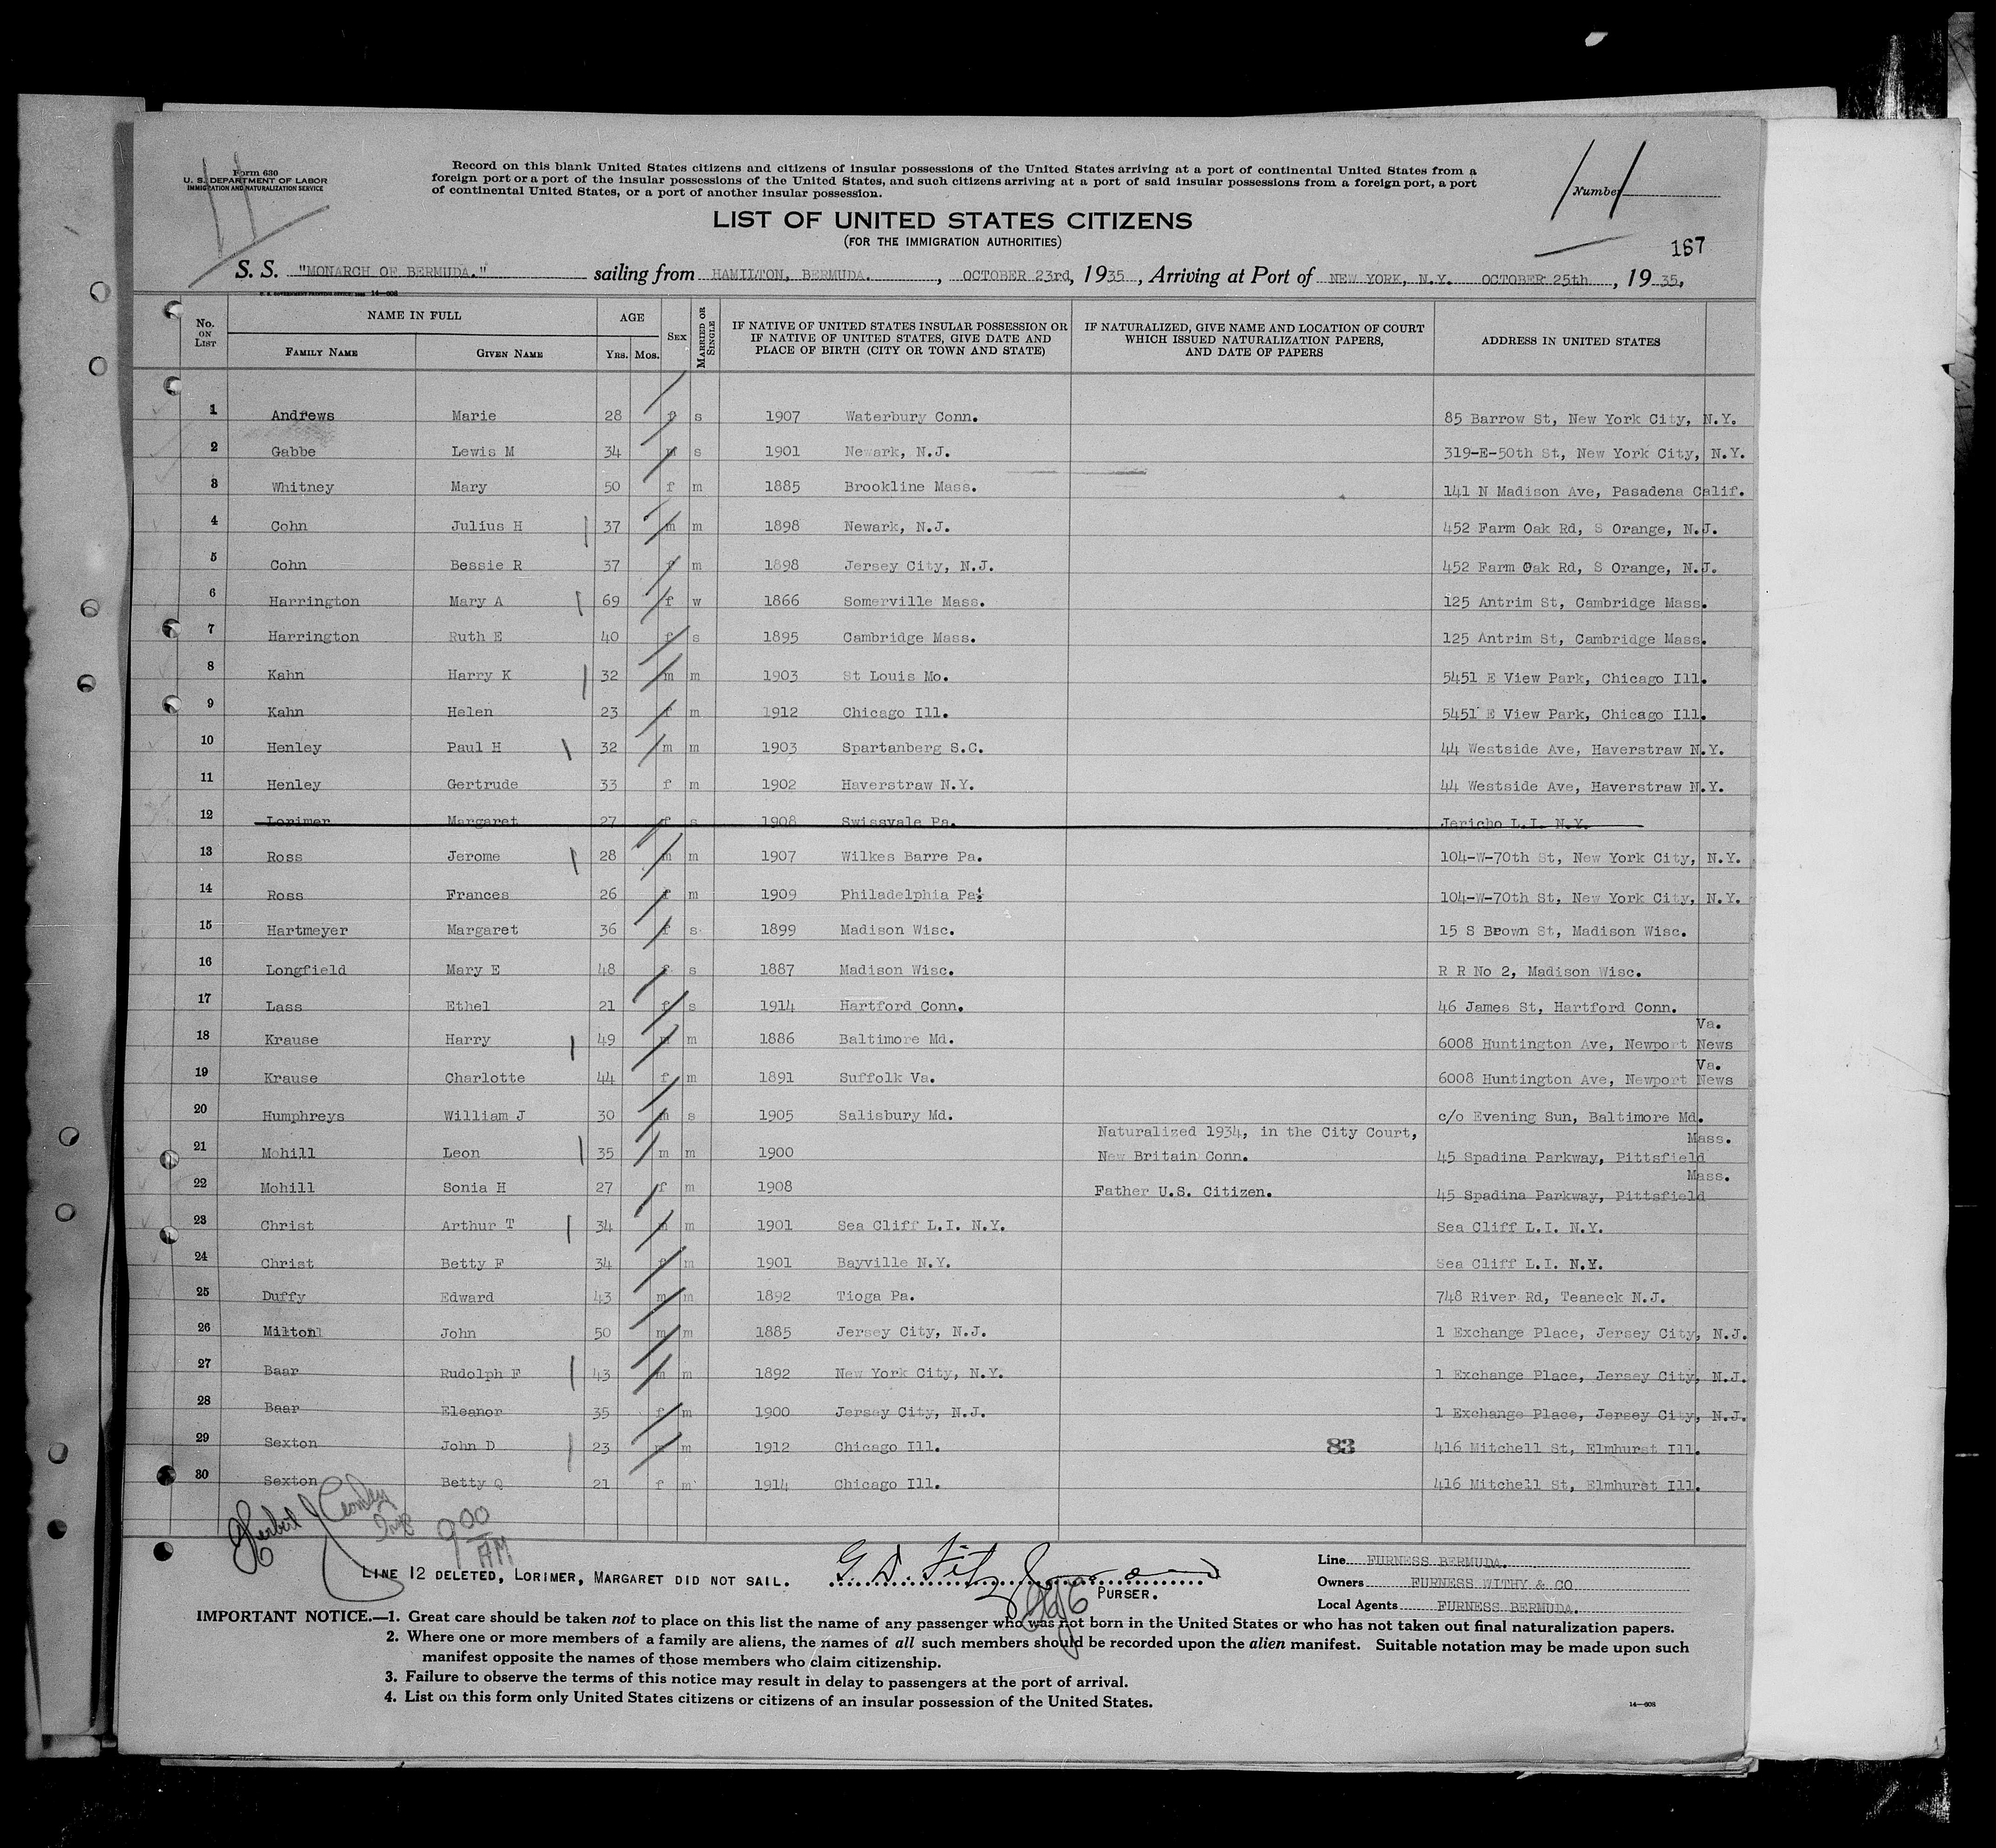 Form 630
U. S. DEPARTMENT OF LABOR
IMMIGRATION AND NATURALIZATION SERVICE
Record on this blank United States citizens and citizens of insular possessions of the United States arriving at a port of continental United States from a
foreign port or a port of the insular possessions of the United States, and such citizens arriving at a port of said insular possessions from a foreign port, a port
of continental United States, or a port of another insular possession.
Number
11
LIST OF UNITED STATES CITIZENS
(FOR THE IMMIGRATION AUTHORITIES)
167
S. S. "MONARCH OF BERMUDA." sailing from HAMILTON, BERMUDA. , OCTOBER 23rd, 1935 , Arriving at Port of NEW YORK, N.Y. OCTOBER 25th , 19 35,
U. S. GOVERNMENT PRINTING OFFICE 14—608
No. ON LIST NAME IN FULL AGE SEX MARRIED OR SINGLE IF NATIVE OF UNITED STATES INSULAR POSSESSION OR IF NATIVE OF UNITED STATES, GIVE DATE AND PLACE OF BIRTH (CITY OR TOWN AND STATE) IF NATURALIZED, GIVE NAME AND LOCATION OF COURT WHICH ISSUED NATURALIZATION PAPERS, AND DATE OF PAPERS ADDRESS IN UNITED STATES
FAMILY NAME GIVEN NAME YRS. MOS.
1 Andrews Marie 28 f s 1907 Waterbury Conn. 85 Barrow St, New York City, N.Y.
2 Gabbe Lewis M 34 m s 1901 Newark, N.J. 319-E-50th St, New York City, N.Y.
3 Whitney Mary 50 f m 1885 Brookline Mass. 141 N Madison Ave, Pasadena Calif.
4 Cohn Julius H 37 m m 1898 Newark, N.J. 452 Farm Oak Rd, S Orange, N.J.
5 Cohn Bessie R 37 f m 1898 Jersey City, N.J. 452 Farm Oak Rd, S Orange, N.J.
6 Harrington Mary A 69 f w 1866 Somerville Mass. 125 Antrim St, Cambridge Mass.
7 Harrington Ruth E 40 f s 1895 Cambridge Mass. 125 Antrim St, Cambridge Mass.
8 Kahn Harry K 32 m m 1903 St Louis Mo. 5451 E View Park, Chicago Ill.
9 Kahn Helen 23 f m 1912 Chicago Ill. 5451 E View Park, Chicago Ill.
10 Henley Paul H 32 m m 1903 Spartanberg S.C. 44 Westside Ave, Haverstraw N.Y.
11 Henley Gertrude 33 f m 1902 Haverstraw N.Y. 44 Westside Ave, Haverstraw N.Y.
12 Lorimer Margaret 27 f s 1908 Swissvale Pa. Jericho L.I. N.Y.
13 Ross Jerome 28 m m 1907 Wilkes Barre Pa. 104-W-70th St, New York City, N.Y.
14 Ross Frances 26 f m 1909 Philadelphia Pa. 104-W-70th St, New York City, N.Y.
15 Hartmeyer Margaret 36 f s 1899 Madison Wisc. 15 S Brown St, Madison Wisc.
16 Longfield Mary E 48 f s 1887 Madison Wisc. R R No 2, Madison Wisc.
17 Lass Ethel 21 f s 1914 Hartford Conn. 46 James St, Hartford Conn.
18 Krause Harry 49 m m 1886 Baltimore Md. 6008 Huntington Ave, Newport News Va.
19 Krause Charlotte 44 f m 1891 Suffolk Va. 6008 Huntington Ave, Newport News Va.
20 Humphreys William J 30 m s 1905 Salisbury Md. c/o Evening Sun, Baltimore Md.
21 Mohill Leon 35 m m 1900 Naturalized 1934, in the City Court, New Britain Conn. 45 Spadina Parkway, Pittsfield Mass.
22 Mohill Sonia H 27 f m 1908 Father U.S. Citizen. 45 Spadina Parkway, Pittsfield Mass.
23 Christ Arthur T 34 m m 1901 Sea Cliff L.I. N.Y. Sea Cliff L.I. N.Y.
24 Christ Betty F 34 f m 1901 Bayville N.Y. Sea Cliff L.I. N.Y.
25 Duffy Edward 43 m m 1892 Tioga Pa. 748 River Rd, Teaneck N.J.
26 Milton John 50 m m 1885 Jersey City, N.J. 1 Exchange Place, Jersey City, N.J.
27 Baar Rudolph F 43 m m 1892 New York City, N.Y. 1 Exchange Place, Jersey City, N.J.
28 Baar Eleanor 35 f m 1900 Jersey City, N.J. 1 Exchange Place, Jersey City, N.J.
29 Sexton John D 23 m m 1912 Chicago Ill. 83 416 Mitchell St, Elmhurst Ill.
30 Sexton Betty Q 21 f m 1914 Chicago Ill. 416 Mitchell St, Elmhurst Ill.
Herbert J
900 AM
LINE 12 DELETED, LORIMER, MARGARET DID NOT SAIL.
G. D. Fitz
PURSER.
Line FURNESS BERMUDA.
Owners FURNESS WITHY & CO
Local Agents FURNESS BERMUDA.
IMPORTANT NOTICE.—1. Great care should be taken not to place on this list the name of any passenger who was not born in the United States or who has not taken out final naturalization papers.
2. Where one or more members of a family are aliens, the names of all such members should be recorded upon the alien manifest. Suitable notation may be made upon such
manifest opposite the names of those members who claim citizenship.
3. Failure to observe the terms of this notice may result in delay to passengers at the port of arrival.
4. List on this form only United States citizens or citizens of an insular possession of the United States.
14—608